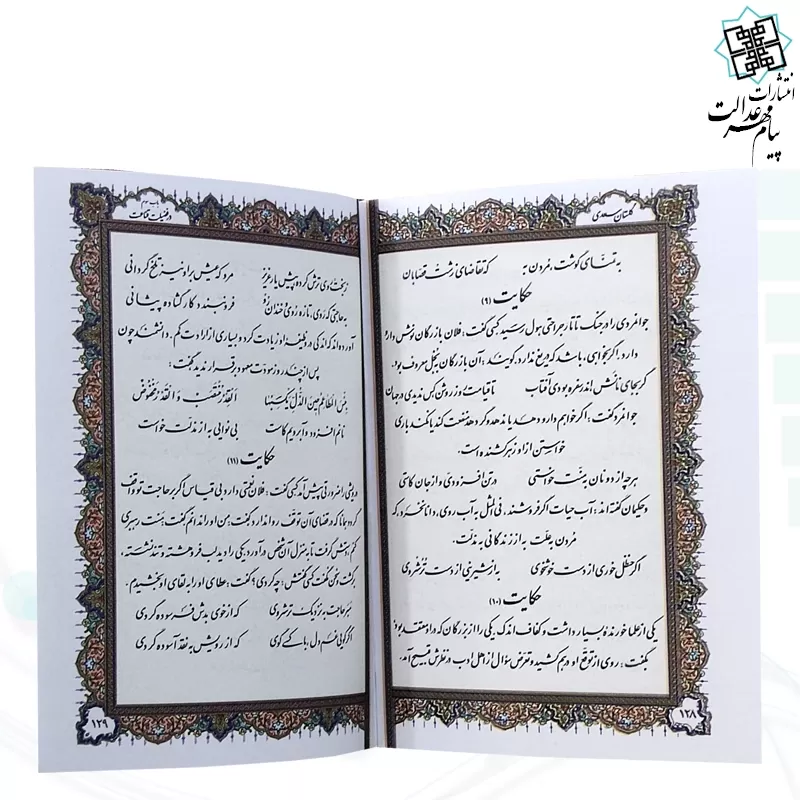 انتشارات
پیام مهر عدالت
گلستان سعدی
به تمنّای گوشت، مُردن به که تقاضای زشت قصّابان
حکایت (۹)
جوانمردی را در جنگ تاتار جراحتی هول رسید کسی گفت: فلان بازرگان نوش دارو
دارد. اگر بخواهی، باشد که دریغ ندارد. گویند: آن بازرگان به بُخل معروف بود.
گر به جای نانش اندر سفره بودی آفتاب تا قیامت روز روشن کس ندیدی در جهان
جوانمرد گفت: اگر خواهم دارو دهد یا ندهد و گر دهد منفعت کند یا نکند باری
خواستن از او زهر کشنده است.
هر چه از دونان به منّت خواستی در تن افزودی و از جان کاستی
و حکیمان گفته‌اند: آب حیات اگر فروشند، فی‌المثل به آب روی، دانا نخرد، که
مُردن به علّت به از زندگانی به مذلّت.
اگر حنظل خوری از دست خوشخوی به از شیرینی از دست ترشروی
حکایت (۱۰)
یکی از علما خورندهٔ بسیار داشت و کفاف اندک یکی را از بزرگان که در او معتقد بود
بگفت: روی از توقّع او درهم کشید و تعرّض سؤال از اهل ادب در نظرش قبیح آمد.
۱۲۸
باب سوم
در فضیلت قناعت
ز بخت روی ترش کرده پیش یار عزیز مرو که عیش بر او نیز تلخ گردانی
به حاجتی که روی، تازه روی و خندان رُو فرو نبندد کار گشاده پیشانی
آورده‌اند که اندکی در وظیفهٔ او زیادت کرد و بسیاری از ارادت کم. دانشمند چون
پس از چند روز مودّت معهود برقرار ندید گفت:
بِئسَ المَطاعِمُ حینَ الذُّلِّ یَکسِبُها اَلقِدرُ مُنتَصِبٌ وَ القَدرُ مَخفُوضٌ
نانم افزود و آبرویم کاست بی‌نوایی به از مذلّت خواست
حکایت (۱۱)
درویشی را ضرورتی پیش آمد کسی گفت: فلان نعمتی دارد بی قیاس اگر بر حاجت تو واقف
گردد همانا که در قضای آن توقّف روا ندارد گفت: من او را ندانم گفت: منت رهبری
کنم. دستش گرفت تا به منزل آن شخص درآورد. یکی را دید لب فروهشته و تند نشسته،
برگشت و سخن نگفت کسی گفتش: چه کردی؟ گفت: عطای او را به لقای او بخشیدم.
مبر حاجت به نزدیک ترشروی که از خوی بدش فرسوده گردی
اگر گویی غم دل با کسی گوی که از رویش به نقد آسوده گردی
۱۲۹